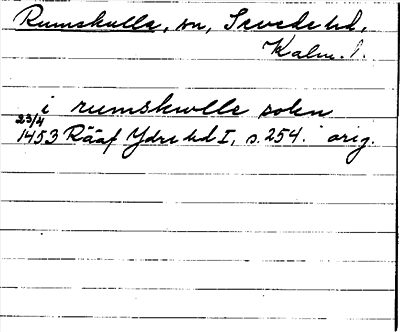 Rumskulla, sn, Sevede hd,
Kalm. l.
i rumskwlle sokn
23/4
1453 Rääf Ydre hd I, s. 254. orig.